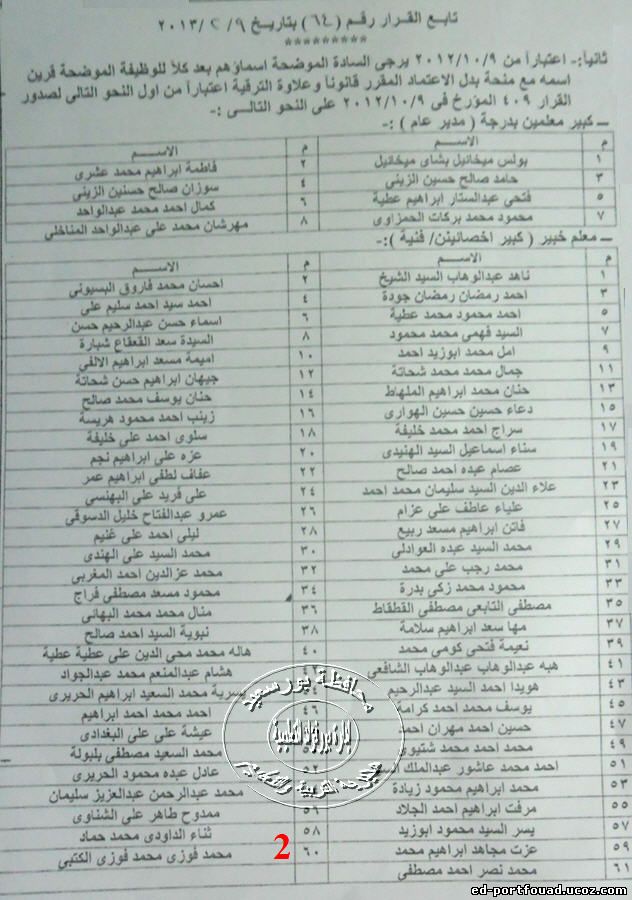 تابع القرار رقم ( ٦٤ ) بتاريخ ٩ / ٢ / ٢٠١٣
*********
ثانيا:- اعتباراً من ٢٠١٢/١٠/٩ يرجى السادة الموضحة اسماؤهم بعد كلاً للوظيفة الموضحة قرين
اسمه مع منحة بدل الاعتماد المقرر قانوناً وعلاوة الترقية اعتباراً من اول الشهر التالى لصدور
القرار ٤٠٩ المؤرخ فى ٢٠١٢/١٠/٩ على النحو التالــى :-
ــ كبير معلمين بدرجة ( مدير عام ) :-
م الاســـم م الاســـم
١ بولس ميخائيل بشاى ميخائيل ٢ فاطمة ابراهيم محمد عشرى
٣ حامد صالح حسين الزينى ٤ سوزان صالح حسنين الزينى
٥ فتحى عبدالستار ابراهيم عطية ٦ كمال احمد محمد عبدالواحد
٧ محمود محمد بركات الحمزاوى ٨ مهرشان محمد على عبدالواحد المناخلى
ــ معلم خبير ( كبير اخصائيين/ فنية ):-
م الاســـم م الاســـم
١ ناهد عبدالوهاب السيد الشيخ ٢ احسان محمد فاروق البسيونى
٣ احمد رمضان رمضان جودة ٤ احمد سيد احمد سليم على
٥ احمد محمود محمد عطية ٦ اسماء حسن عبدالرحيم حسن
٧ السيد فهمى محمد محمود ٨ السيدة سعد القعقاع شبارة
٩ امل محمد ابوزيد احمد ١٠ اميمة مسعد ابراهيم الالفى
١١ جمال محمد محمد شحاتة ١٢ جيهان ابراهيم حسن شحاتة
١٣ حنان محمد ابراهيم الملهاط ١٤ حنان يوسف محمد صالح
١٥ دعاء حسين حسين الهوارى ١٦ زينب احمد محمود هريسة
١٧ سراج احمد محمد خليفة ١٨ سلوى احمد على خليفة
١٩ سناء اسماعيل السيد الهنيدى ٢٠ عزه على ابراهيم نجم
٢١ عصام عبده احمد صالح ٢٢ عفاف لطفى ابراهيم عمر
٢٣ علاء الدين السيد سليمان محمد احمد ٢٤ على فريد على البهنسى
٢٥ علياء عاطف على عزام ٢٦ عمرو عبدالفتاح خليل الدسوقى
٢٧ فاتن ابراهيم مسعد ربيع ٢٨ ليلى احمد على غنيم
٢٩ محمد السيد عبده العوادلى ٣٠ محمد السيد على الهندى
٣١ محمد رجب على محمد ٣٢ محمد عزالدين احمد المغربى
٣٣ محمود محمد زكى بدرة ٣٤ محمود مسعد مصطفى فراج
٣٥ مصطفى التابعى مصطفى القطقاط ٣٦ منال محمد محمد البهائى
٣٧ مها سعد ابراهيم سلامة ٣٨ نبوية السيد احمد صالح
٣٩ نعيمة فتحى كومى محمد ٤٠ هاله محمد محى الدين على عطية عطية
٤١ هبه عبدالوهاب عبدالوهاب الشافعى ٤٢ هشام عبدالمنعم محمد عبدالجواد
٤٣ هويدا احمد السيد عبدالرحيم يسرية محمد السعيد ابراهيم الحريرى
٤٥ يوسف محمد احمد كرامة ٤٦ احمد محمد احمد ابراهيم
٤٧ حسين احمد مهران احمد عيشة على على البغدادى
٤٩ محمد احمد محمد شتيوى محمد السعيد مصطفى بلبولة
٥١ احمد محمد عاشور عبدالملك ٥٢ عادل عبده محمود الحريرى
٥٣ محمد ابراهيم محمود زيادة محمد عبدالرحمن عبدالعزيز سليمان
٥٥ مرفت ابراهيم احمد الجلاد ٥٦ ممدوح طاهر على الشناوى
٥٧ يسر السيد محمود ابوزيد ٥٨ ثناء الداودى محمد حماد
٥٩ عزت مجاهد ابراهيم محمد ٦٠ محمد فوزى محمد فوزى الكتبى
٦١ محمد نصر احمد مصطفى
محافظة بورسعيد
2
ed-portfouad.ucoz.com